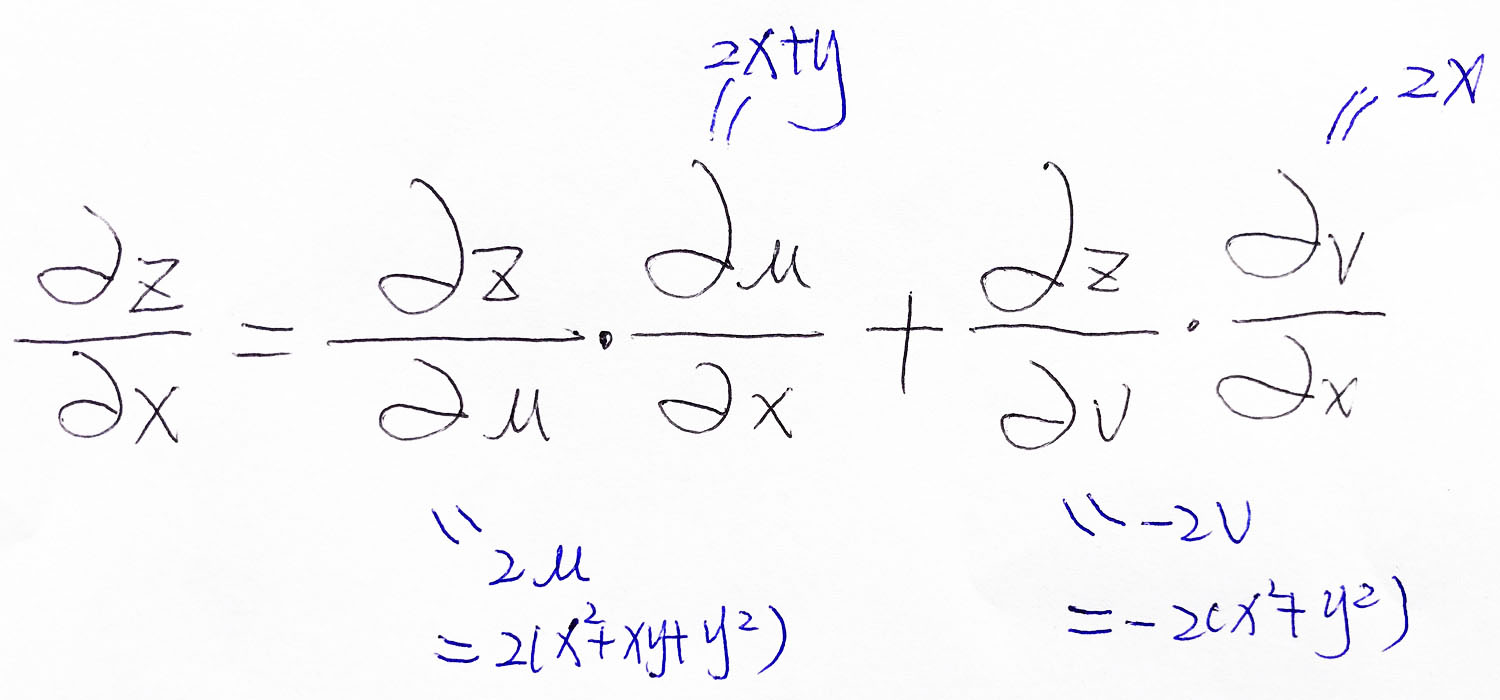 2x+y
2x
∂z/∂x = ∂z/∂u · ∂u/∂x + ∂z/∂v · ∂v/∂x
2u
= 2(x²+xy+y²)
-2v
= -2(x²+y²)